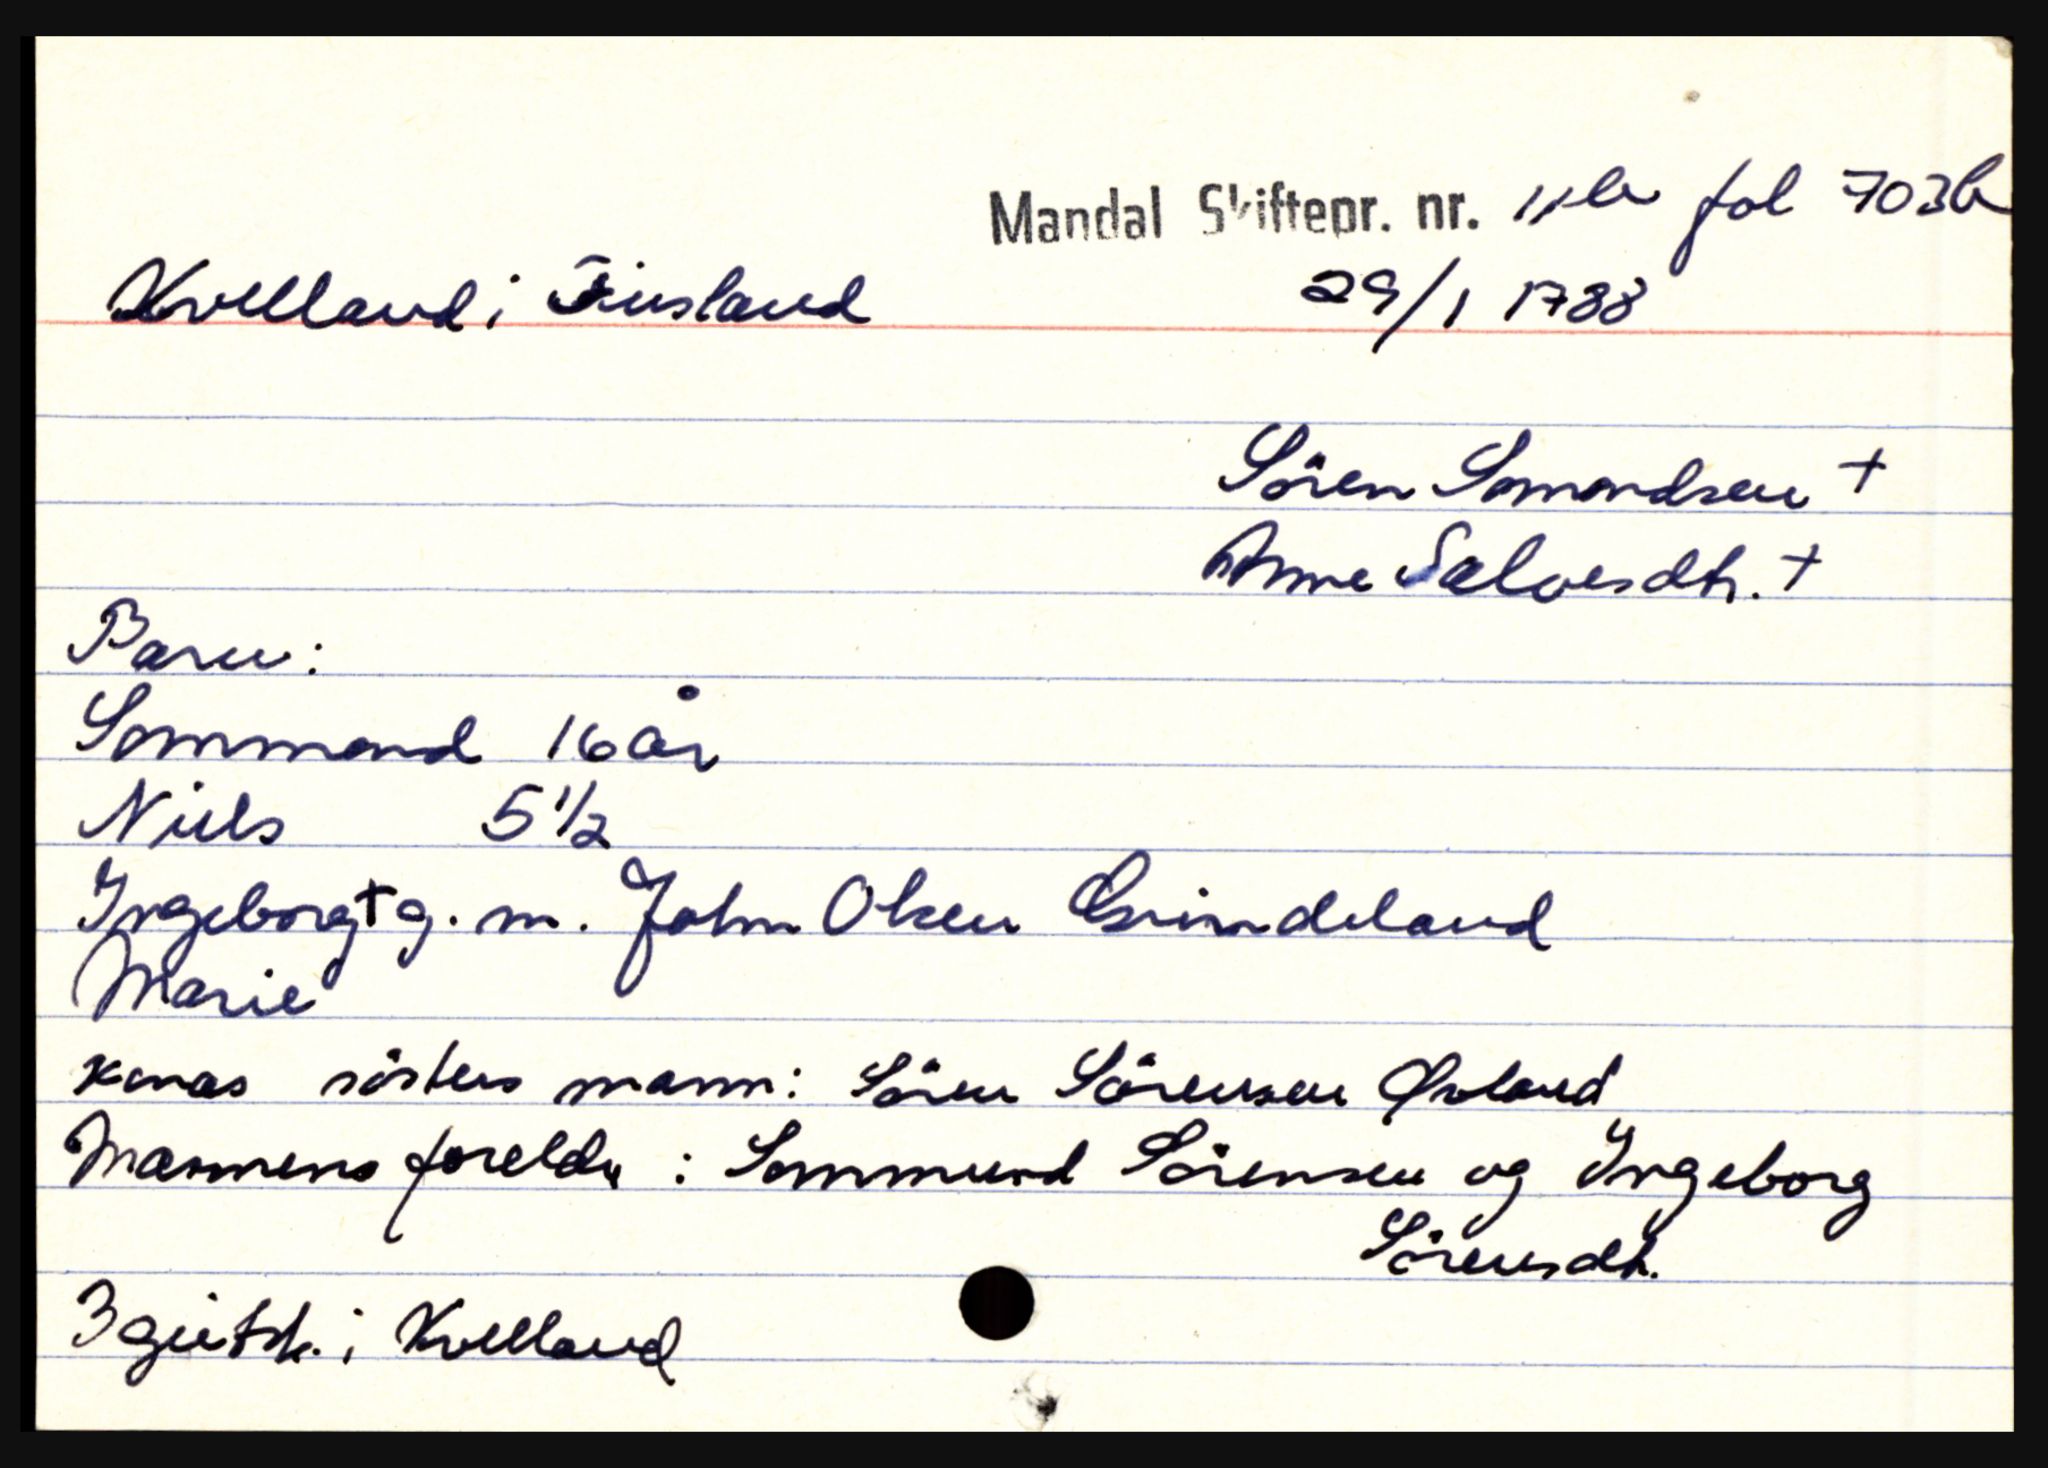 Mandal Skiftepr. nr. 11b fol 703b
Kvelland i Finsland 29/1 1788
Sören Somondsen +
Anne Salvesdtr. +
Barn:
Sommond 16 år
Niels 5 1/2
Ingeborg + g. m. John Olsen Grindeland
Marie
Konas sösters mann: Sören Sörensen Øvland
Mannens foreldre : Sommund Sörensen og Ingeborg
Sörensdtr.
3 gütsk. i Kvelland